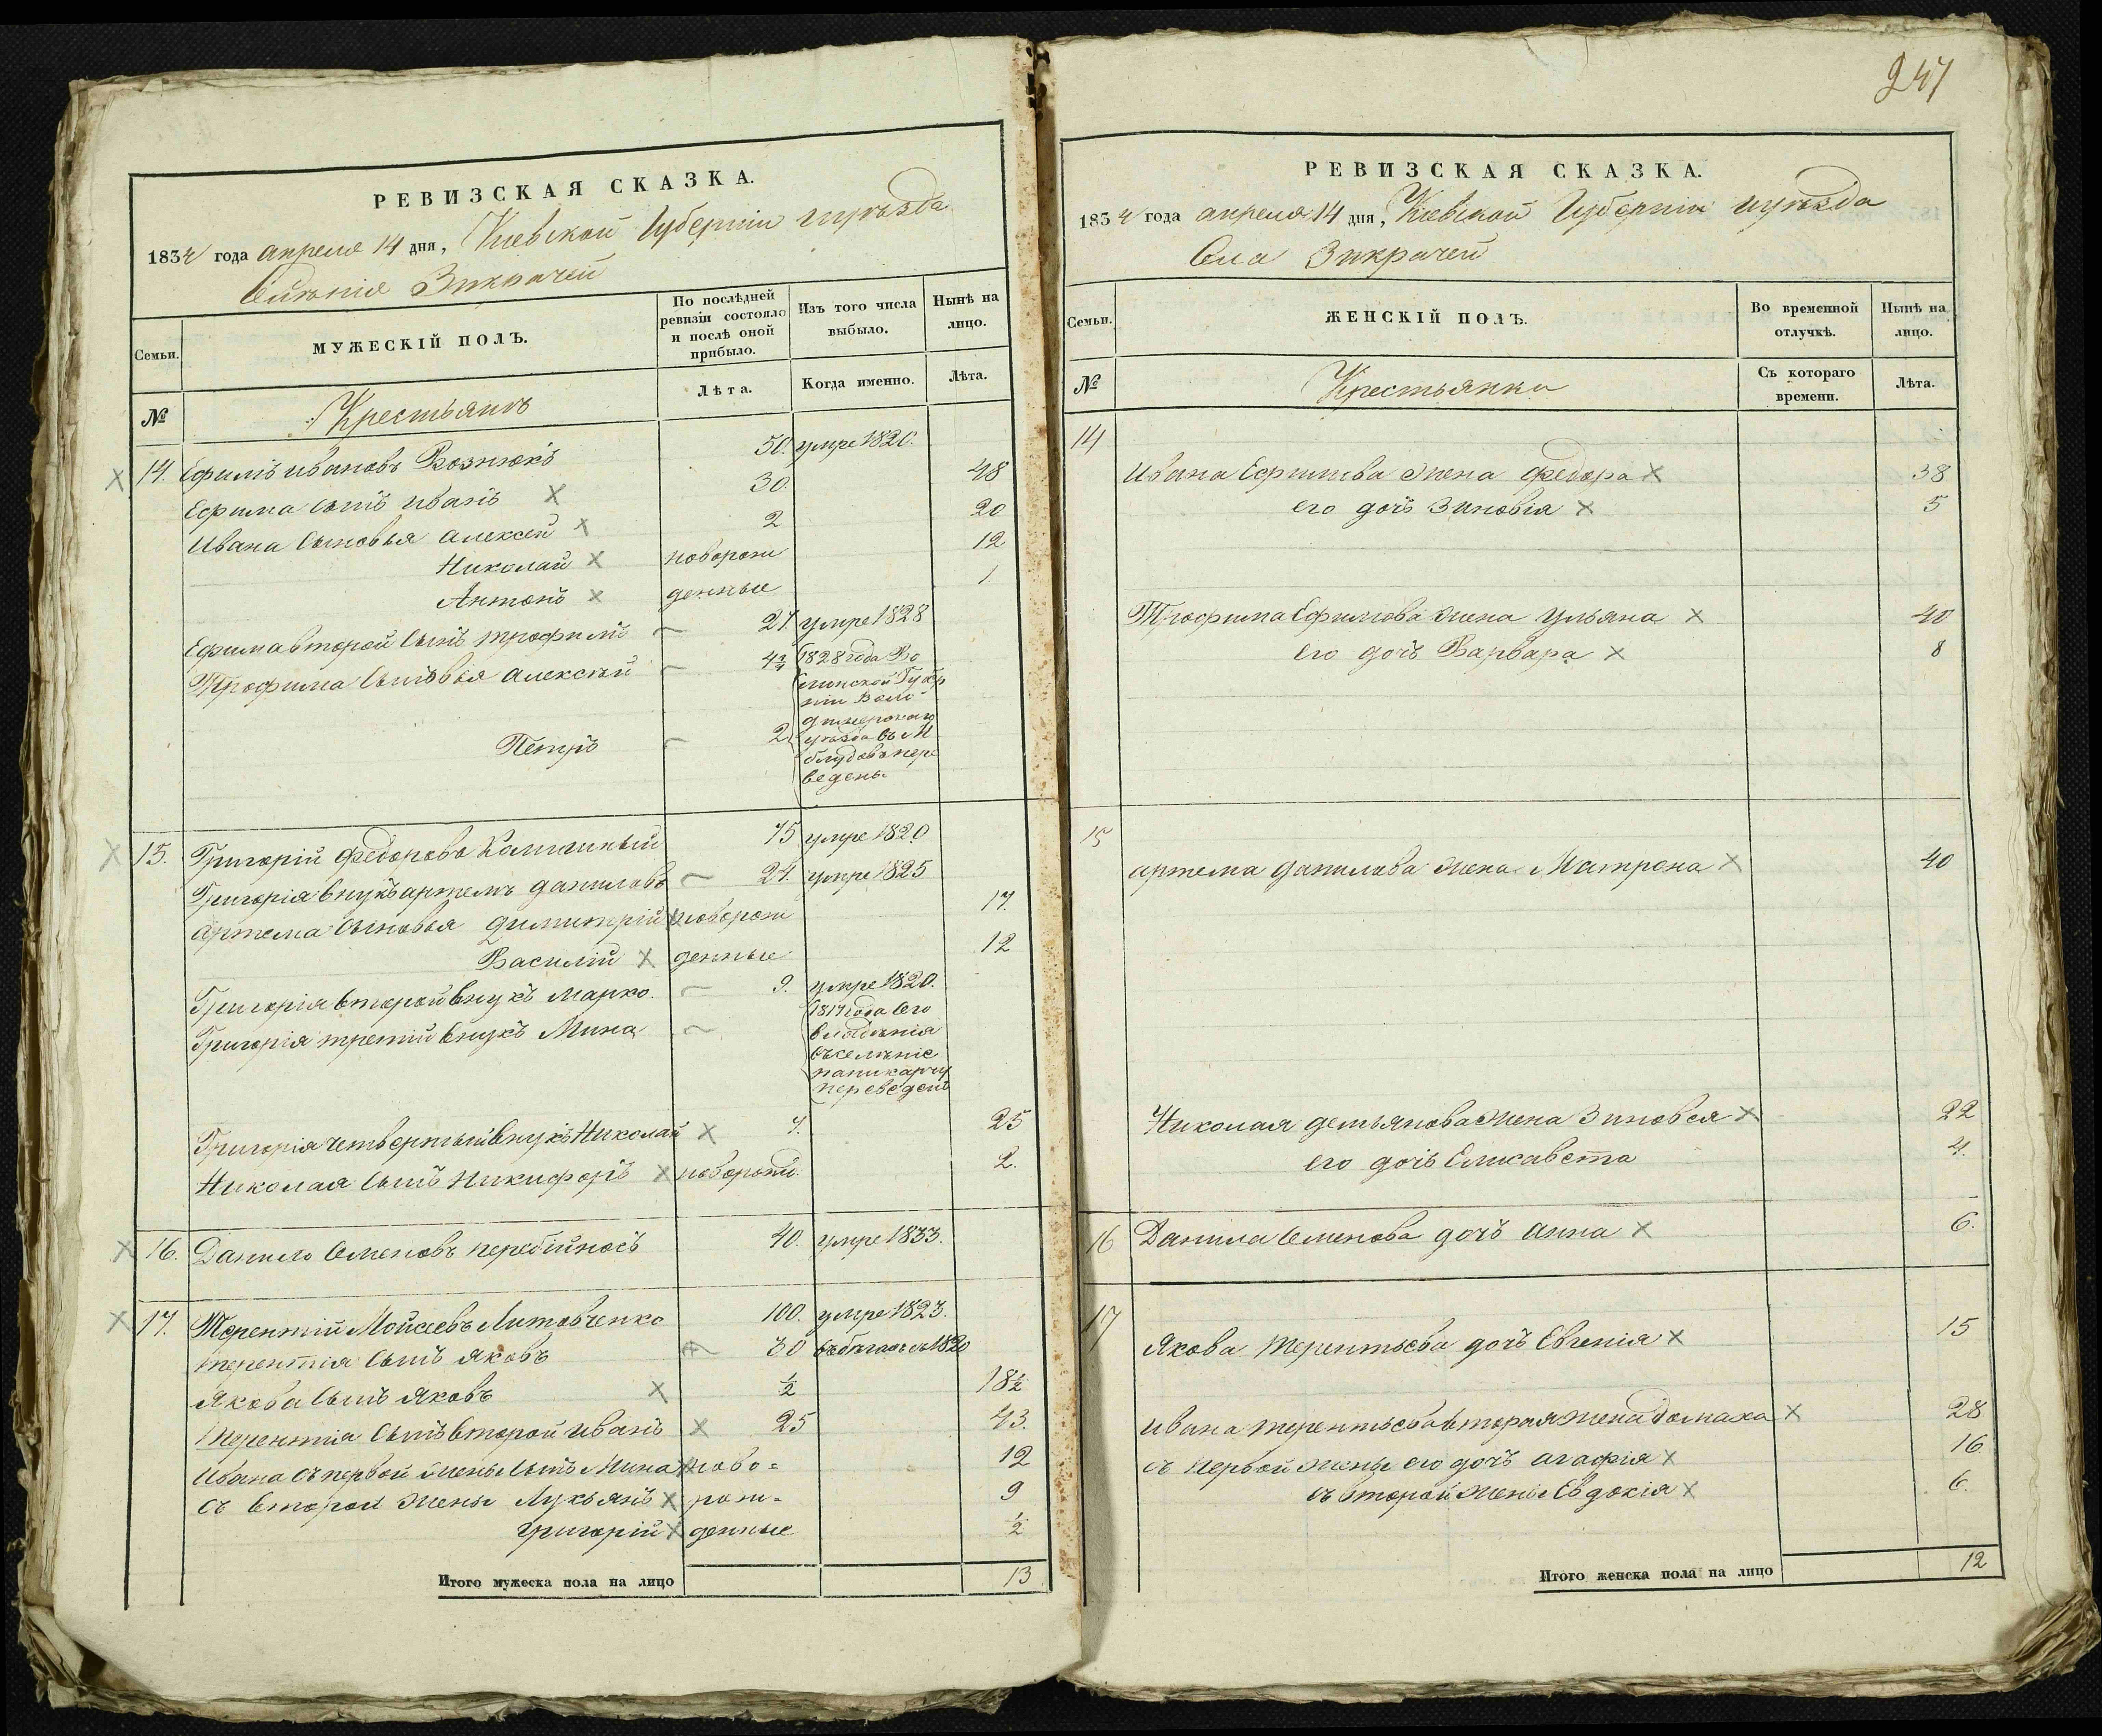 РЕВИЗСКАЯ СКАЗКА.
1834 года апреля 14 дня, Киевской Губернiи иуѣзда
Зикрачей
Семьи.
МУЖЕСКIЙ ПОЛЪ.
По послѣдней ревизiи состояло и послѣ оной прибыло.
Изъ того числа выбыло.
Нынѣ на лицо.
№
Крестьянъ
Лѣта.
Когда именно.
Лѣта.
14. Ефимъ Ивановъ Вознюкъ 50. умре 1820.
Ефима сынъ Иванъ 30. 48
Ивана сыновья Алексей 2 20
Николай новорож 12
Антонъ денные 1
Ефима второй сынъ Трофимъ 27. умре 1828
Трофима сыновья Алексѣй 1828 года Во
лынской Губер
нiи Вла
димерскаго
Петръ 2 уѣзда въ М
блудовъ пере
ведены
15. Григорiй Федоровъ 75 умре 1820
Григорiя внукъ Артемъ Даниловъ 24. умре 1825
Артема сыновья Димитрiй новорож 17.
Василiй денные 12
Григорiя второй внукъ Марко. 9. умре 1820.
Григорiя третiй внукъ Мина года его
владѣнiя
въ селѣнiе
паникарчу
переведенъ
Григорiя четвертый внукъ Николай 7. 25
Николая сынъ Никифоръ новорожд. 2.
16. Данило Семеновъ Перебiйносъ 40. умре 1833.
17. Терентiй Мойсеевъ Литовченко 100. умре 1823.
Терентiя сынъ Яковъ 30 въ бѣгахъ съ 1820
Якова сынъ Яковъ ½ 18½
Терентiя сынъ второй Иванъ 25 43.
Ивана съ первой жены сынъ Мина ново= 12
съ второй жены Лукьянъ рож= 9
Григорiй денные ½
Итого мужеска пола на лицо 13
247
РЕВИЗСКАЯ СКАЗКА.
1834 года апреля 14 дня, Киевской Губернiи иуѣзда
Села Зикрачей
Семьи.
ЖЕНСКIЙ ПОЛЪ.
Во временной отлучкѣ.
Нынѣ на лицо.
№
Крестьянки
Съ котораго времени.
Лѣта.
14
Ивана Ефимова жена Федора 38
его дочь Зиновiя 5
Трофима Ефимова жена Ульяна 40
его дочь Варвара 8
15
Артема Данилова жена Матрона 40
Николая Демьянова жена Зиновея 22
его дочь Елисавета 4.
16 Данила Семенова дочь Анна 6.
17
Якова Терентьева дочь Евгенiя 15
Ивана Терентьева вторая жена Домаха 28
съ первой жены его дочь Агафiя 16
съ второй жены Евдокiя 6.
Итого женска пола на лицо 12